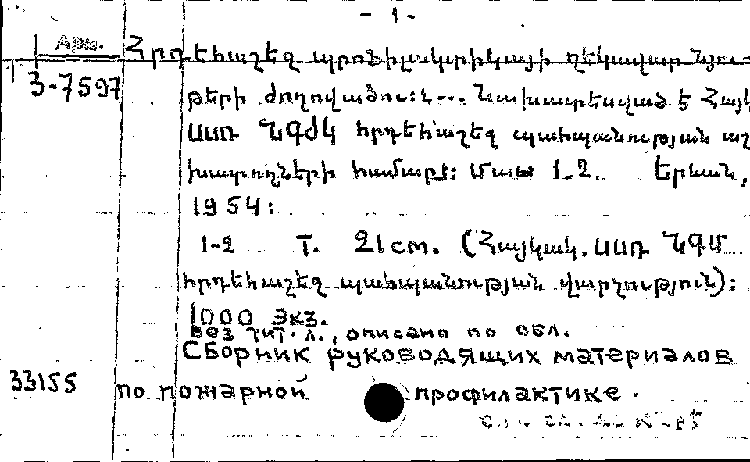 - 1 -
Арм. Հրդեհաշեջ պրոֆիլակտիկայի ղեկավար նյու-
3-7597
թերի ժողովածու:... Նախատեսված է Հայկ
ՍՍՌ ՆԳՄ հրդեհաշեջ պահպանության աշ
խատողների համար: Մաս 1-2. Երևան,
1954:
1-2 т. 21 см. (Հայկակ. ՍՍՌ ՆԳՄ
հրդեհաշեջ պահպանության վարչություն):
1000 экз.
Без тит. л., описано по обл.
Сборник руководящих материалов
33155 по пожарной профилактике.